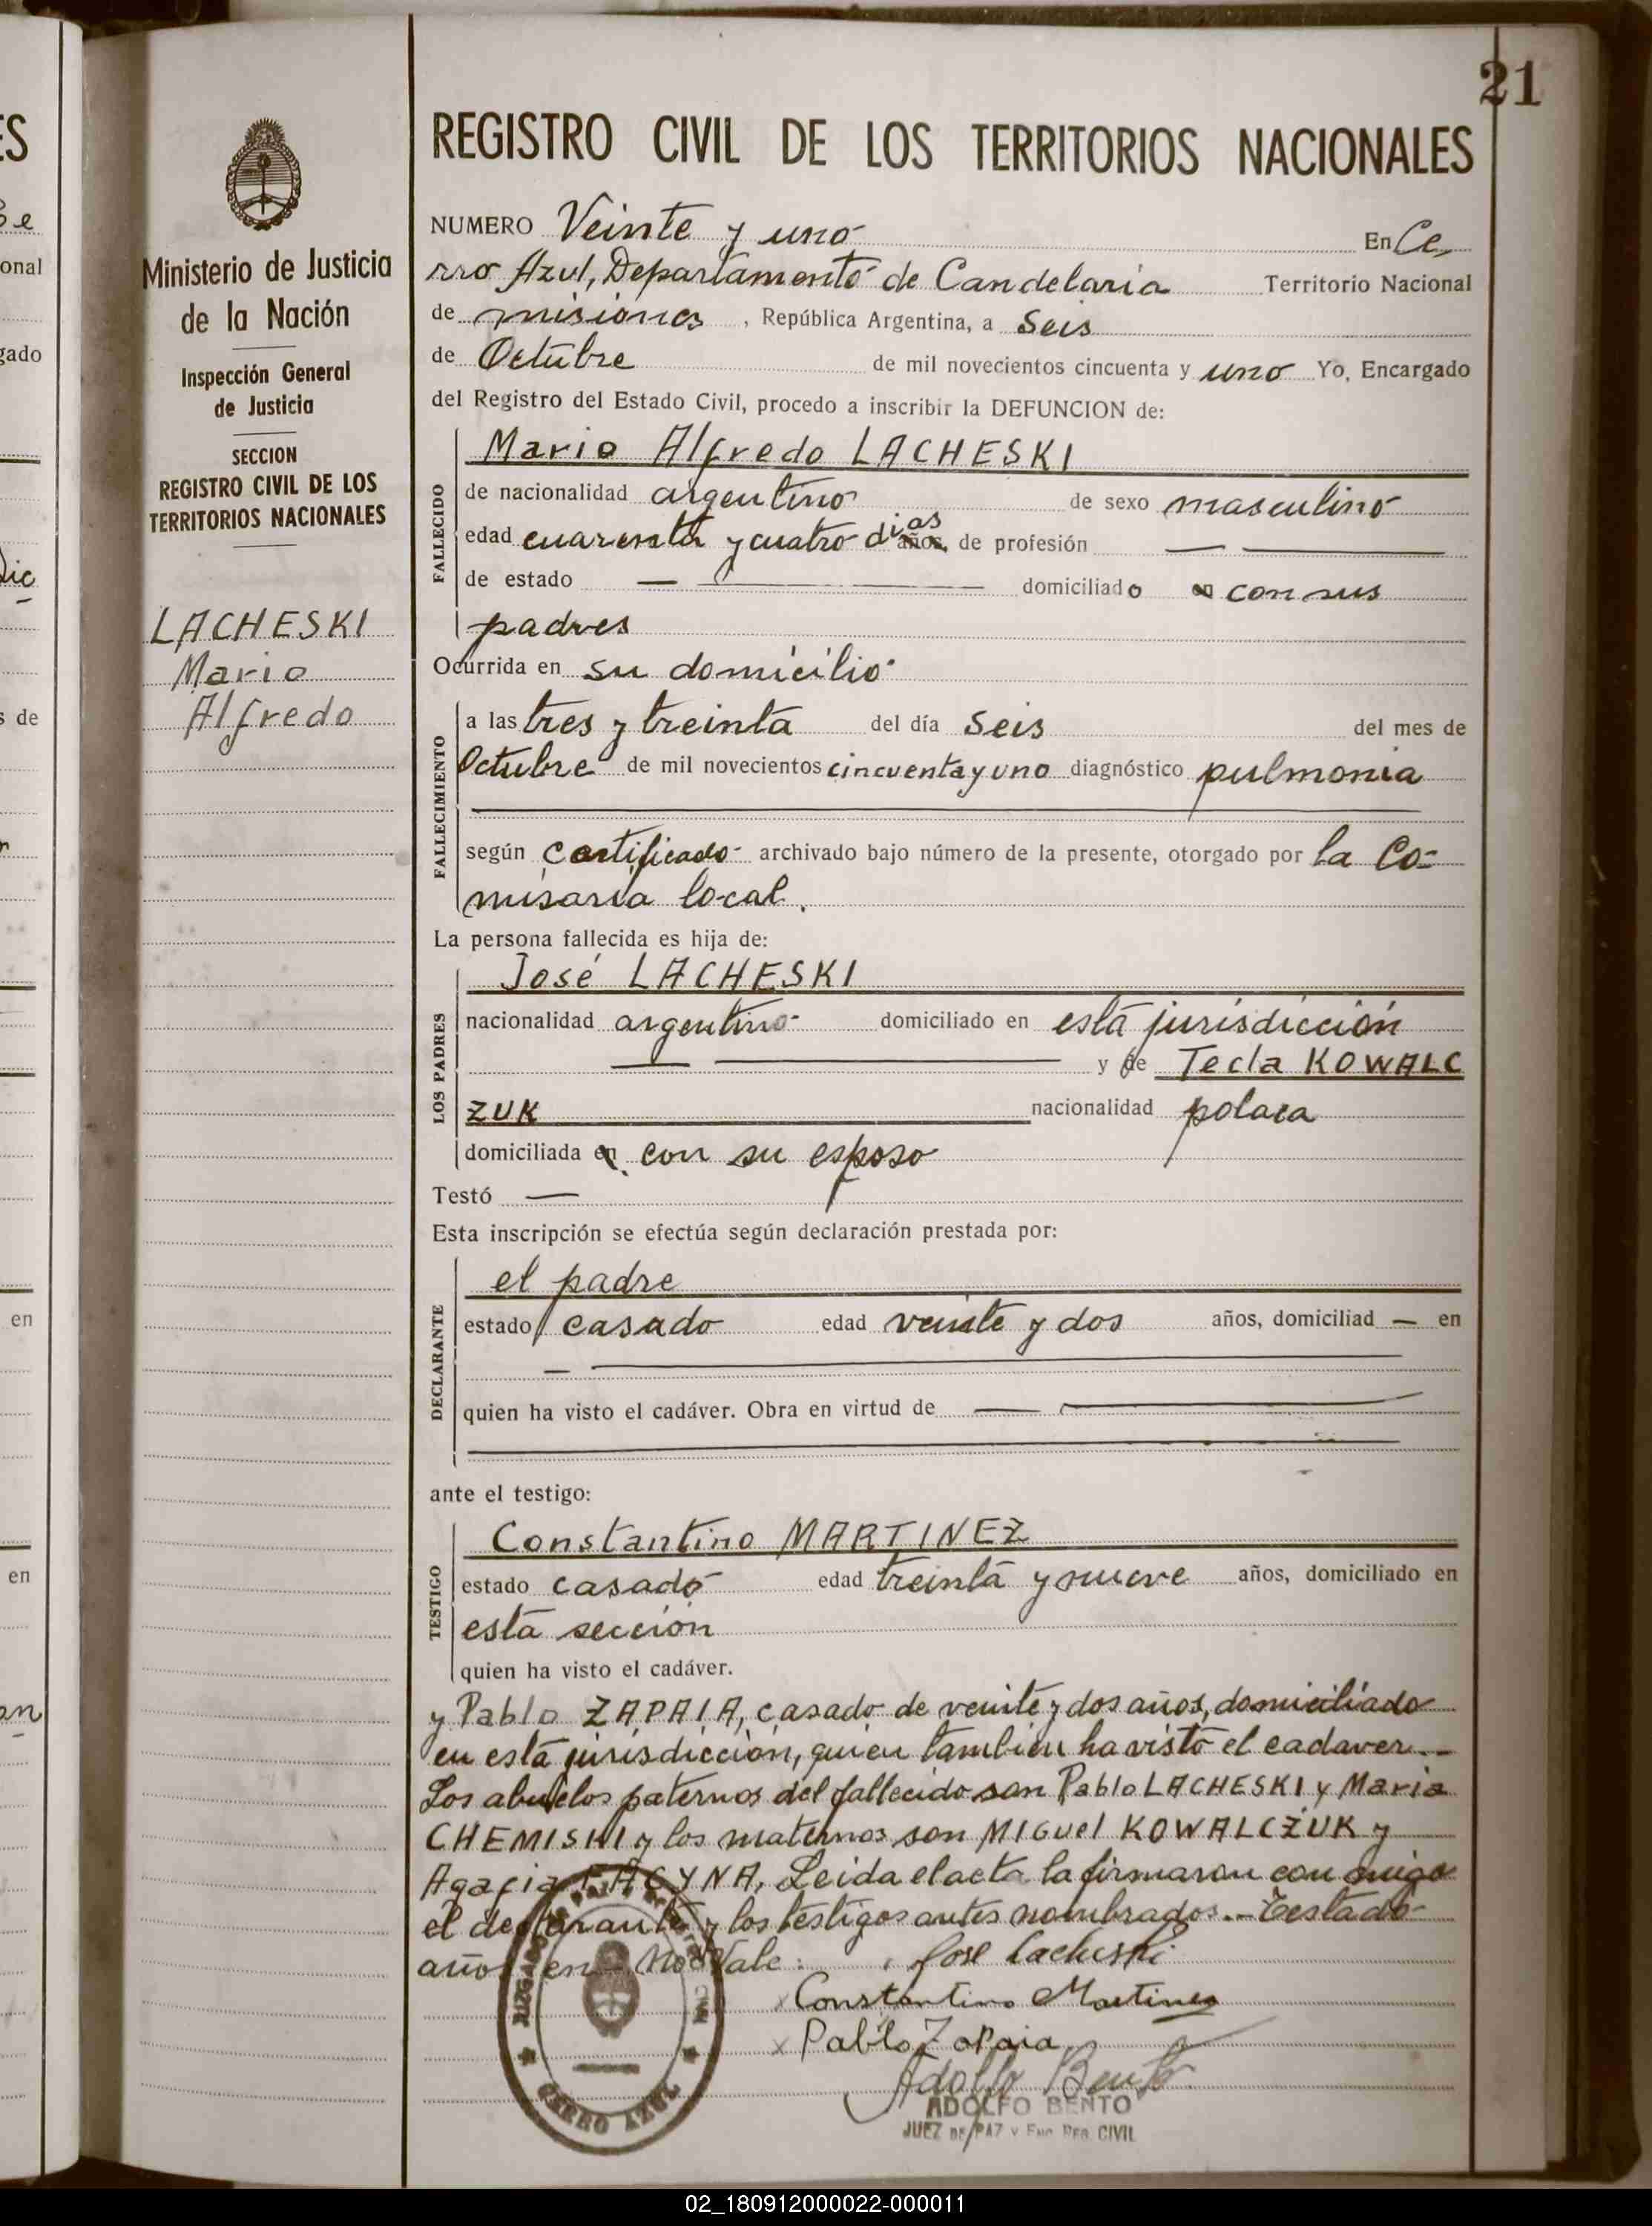 21
REGISTRO CIVIL DE LOS TERRITORIOS NACIONALES
Ministerio de Justicia
de la Nación
Inspección General
de Justicia
SECCION
REGISTRO CIVIL DE LOS
TERRITORIOS NACIONALES
LACHESKI
Mario
Alfredo
NUMERO Veinte y uno En Ce,
rro Azul, Departamento de Candelaria Territorio Nacional
de misiones, República Argentina, a Seis
de Octubre de mil novecientos cincuenta y uno Yo, Encargado
del Registro del Estado Civil, procedo a inscribir la DEFUNCION de:
FALLECIDO
Mario Alfredo LACHESKI
de nacionalidad argentino de sexo masculino
edad cuarenta y cuatro dias años, de profesión —
de estado — domiciliado en con sus
padres
Ocurrida en su domicilio
FALLECIMIENTO
a las tres y treinta del día Seis del mes de
Octubre de mil novecientos cincuenta y uno diagnóstico pulmonia
según certificado archivado bajo número de la presente, otorgado por la Co-
misaria local.
La persona fallecida es hija de:
LOS PADRES
José LACHESKI
nacionalidad argentino domiciliado en esta jurisdicción
— y de Tecla KOWALC
ZUK nacionalidad polaca
domiciliada en con su esposo
Testó —
Esta inscripción se efectúa según declaración prestada por:
DECLARANTE
el padre
estado casado edad veinte y dos años, domiciliad — en
—
quien ha visto el cadáver. Obra en virtud de —
ante el testigo:
TESTIGO
Constantino MARTINEZ
estado casado edad treinta y nueve años, domiciliado en
esta sección
quien ha visto el cadáver.
y Pablo ZAPAIA, casado de veinte y dos años, domiciliado
en esta jurisdicción, quien tambien ha visto el cadaver.—
Los abuelos paternos del fallecido son Pablo LACHESKI y Maria
CHEMISKI y los maternos son MIGUel KOWALCZUK y
Agafia, Leida el acta la firmaron con migo
el declarante y los testigos antes nombrados.— Testado
años en — No Vale:
José Lacheski
Constantino Martinez
x Pablo Zapaia
Adolfo Bento
ADOLFO BENTO
JUEZ DE PAZ Y ENC. REG. CIVIL
JUZGADO DE PAZ
CERRO AZUL
02_180912000022-000011